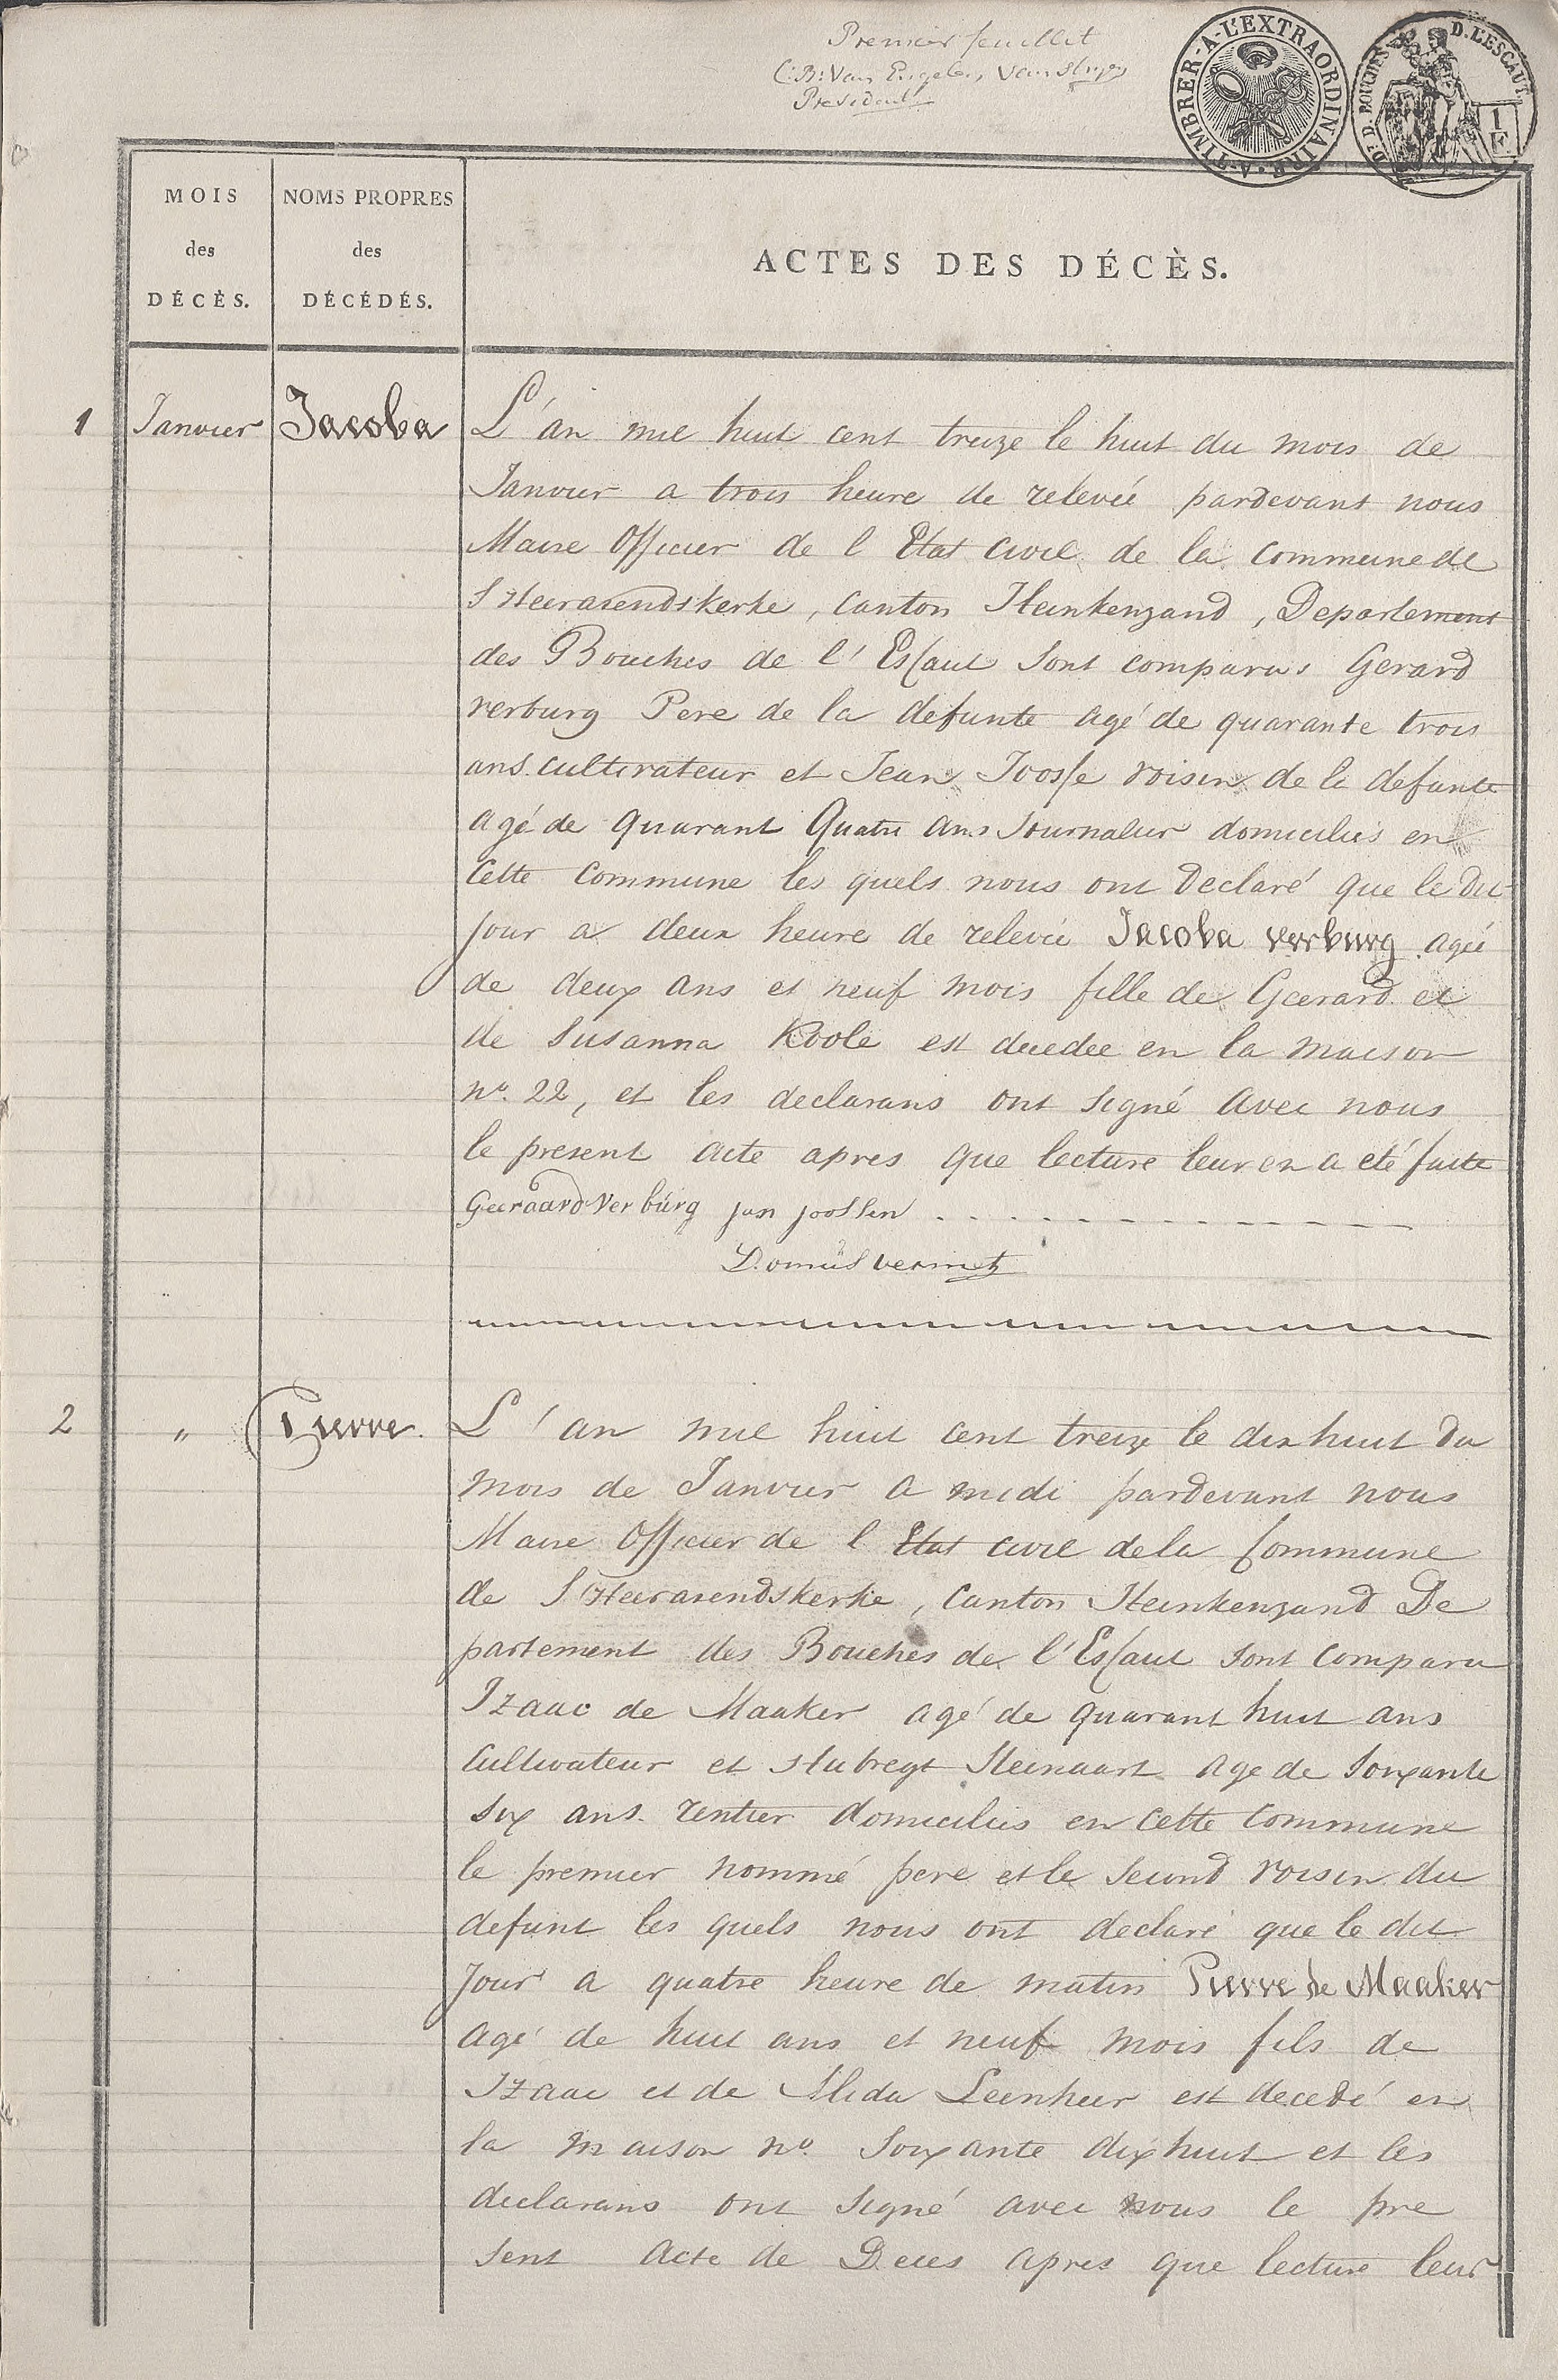 Premier feuillet
C: B: Van
President
A TIMBRER-A-L'EXTRAORDINAIRE
Dt. D. BOUCHES D. L'ESCAUT.
1 F
MOIS
des
DÉCÈS.
NOMS PROPRES
des
DÉCÉDÉS.
ACTES DES DÉCÈS.
1 Janvier Jacoba
L'an mil huit cent treize le huit du mois de
Janvier a trois heure de relevée pardevant nous
Maire Officier de l Etat Civil de la Commune de
S Heerarendskerke, Canton Heinkenzand, Departement
des Bouches de l'Escaut sont comparus Gerard
verburg Pere de la defunte agé de quarante trois
ans cultivateur et Jean Joosse voisin de la defunte
agé de quarant Quatre ans Journalier domiciliés en
Cette Commune les quels nous ont Declaré que le dit
jour a deux heure de relevée Jacoba verburg agée
de deux ans et neuf mois fille de Geerard et
de Susanna Koole est decedee en la maison
no. 22, et les declarans ont signé avec nous
le present acte apres que lecture leur en a eté faite
Geeraard Verburg jan joossen
2 " Pierre.
L'an mil huit cent treize le dix huit du
mois de Janvier a midi pardevant nous
Maire Officier de l Etat civil de la Commune
de S Heerarendskerke, Canton Heinkenzand De
partement des Bouches de l'Escaut sont Comparu
Izaac de Maaker agé de quarant huit ans
Cultivateur et Hubregt Steinaart age de soixante
six ans rentier domiciliés en cette Commune
le premier nommé pere et le second voisin du
defunt les quels nous ont declaré que le dit
Jour a quatre heure de matin Pierre de Maaker
agé de huit ans et neuf mois fils de
Izaac et de Alida Leenheer est decedé en
la maison no. soixante dix huit et les
declarans ont signé avec nous le pre
sent Acte de Deces apres que lecture leur